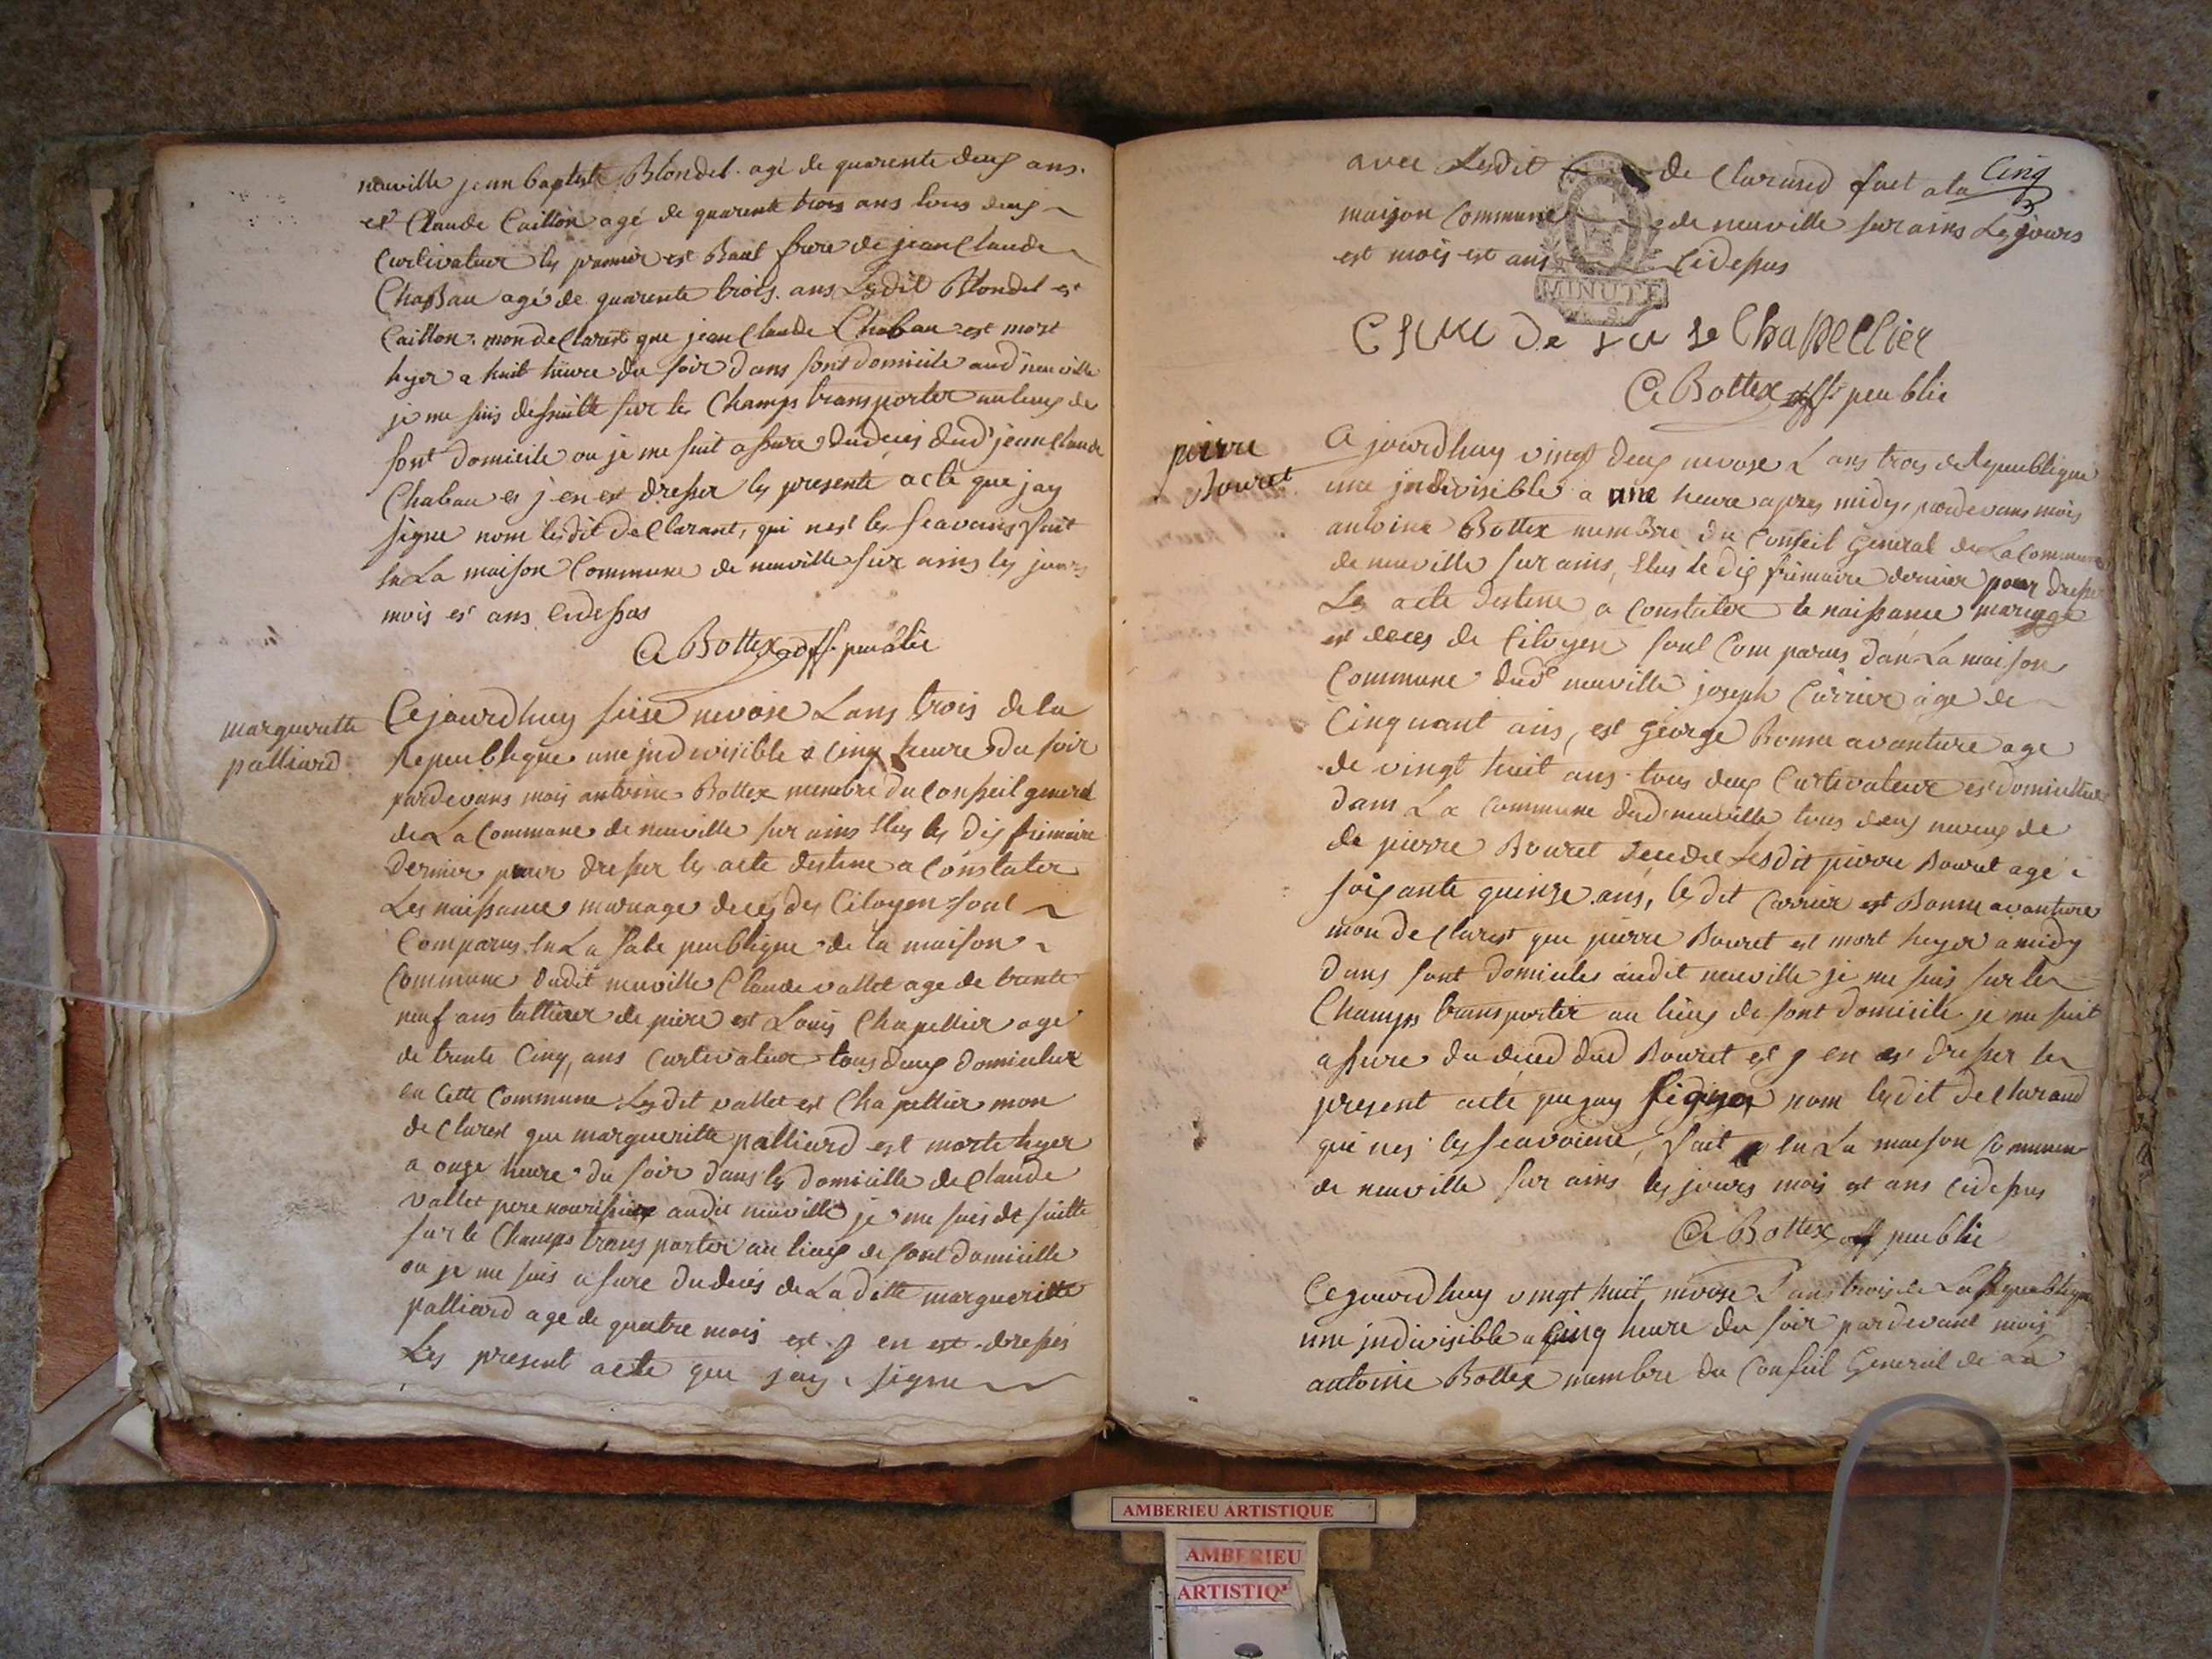 neuville jean baptiste Blondel agé de quarente deux ans.
et Claude Caillon agé de quarente trois ans tous deux
Curtivateur les premier est Baul frere de jean Claude
ChaBau agé de quarente trois ans Lesdit Blondel et
Caillon mon deClarest que jean Claude Chabau est mort
hyer a huit hiure du soir dans sont domicile aud neuville
je me suis de suitte sur les Champs transporter au lieux de
sont domicile ou je me suit assure dudeces dud jean Claude
Chabau es j en est dresser les presente acte que jay
signe nom lesdit deClarant, qui nest les scavans fait
en La maison Commune de neuville sur ains les jours
mois et ans cidessas
A Bottex off. peublic
margueritte
palliard
Cejourdhuy seise nivose Lans trois dela
Repeublique une jndivisible a cinq heure du soir
pardevans mois antoine Bottex membre du Conseil general
de La Commune de neuville sur ains Elus les dix frimaire
dernier pour dresser les acte destine a Constater
Les naissance mariage deces des Citoyen sont
Comparus en La sale peublique de la maison
Commune dudit neuville Claude vallet age de trente
neuf ans tallieur de piere est Louis Chapellier age
de trente Cinq, ans Curtivateur tous deux domicilier
en Cette Commune Lesdit vallet est Chapellier mon
deClarest que margueritte palliard est morte hyer
a onze heure du soir dans les domicille de Claude
vallet pere nourissier audit neuville je me suis de suitte
sur le Champs transporter au lieux de sont domicille
ou je me suis assure dudecés de La ditte margueritte
palliard age de quatre mois est j en est dressés
Les present acte que jay signe
avec Lesdit de Clarand fait a la Cinq
maison Commune de neuville sur ains Les jours
est mois est ans cidessus
MINUTE
le Chapellier
A Bottex off peublic
pierre
Bouret
A jourdhuy vingt deux nivose L ans trois de Republique
une jndivisible a une heure apres midy, pardevans mois
antoine Bottex memBre du Conseil General de La Commune
de neuville sur ains, Elus le dix frimaire dernier pour dresser
Les acte destine a Constater le naissance mariage
est deces de Citoyen sont Comparus dans La maison
Commune dud neuville joseph Carrier age de
Cinquant ans, est george Bonne avanture age
de vingt huit ans tous deux Curtivateur est domicilier
dans La Commune dud neuville tous deux neveux de
de pierre Bouret decedé Lesdit pierre Bouret agé
soixante quinze ans, lesdit Carrier est Bonne avanture
mon deClarest que pierre Bouret est mort hyer a midy
dans sont domicile audit neuville je me suis sur le
Champs transporter au lieux de sont domicile je me suit
assure du deced dud Bouret est j en est dresser les
present acte que jay signer nom lesdit deClarand
qui nes les scavoient, fait en La maison Commune
de neuville sur ains les jours mois est ans cidessus
A Bottex off peublic
Cejourdhuy vingt huit nivose L ans trois de La Repeublique
une jndivisible a Cinq heure du soir pardevant mois
antoine Bottex membre du Conseil General de La
AMBERIEU ARTISTIQUE
AMBERIEU
ARTISTIQ